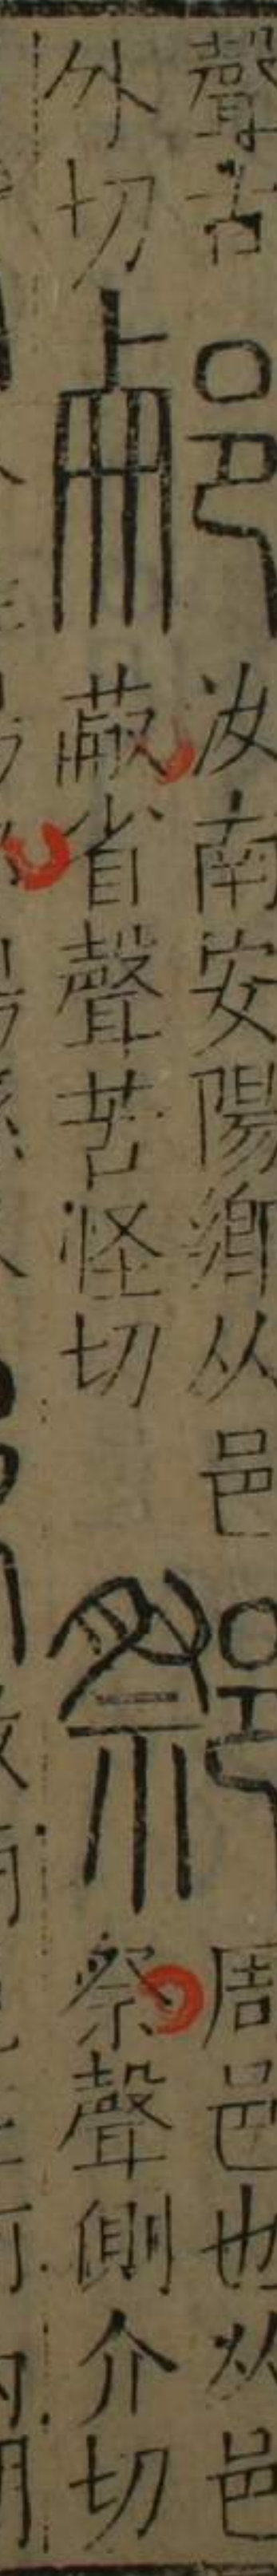 聲古
外切
汝南安陽鄉从邑
蔽省聲苦怪切
周邑也从邑
祭聲側介切